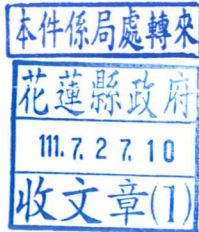 本件係局處轉來
花蓮縣政府
111.7.27.10
收文章(1)